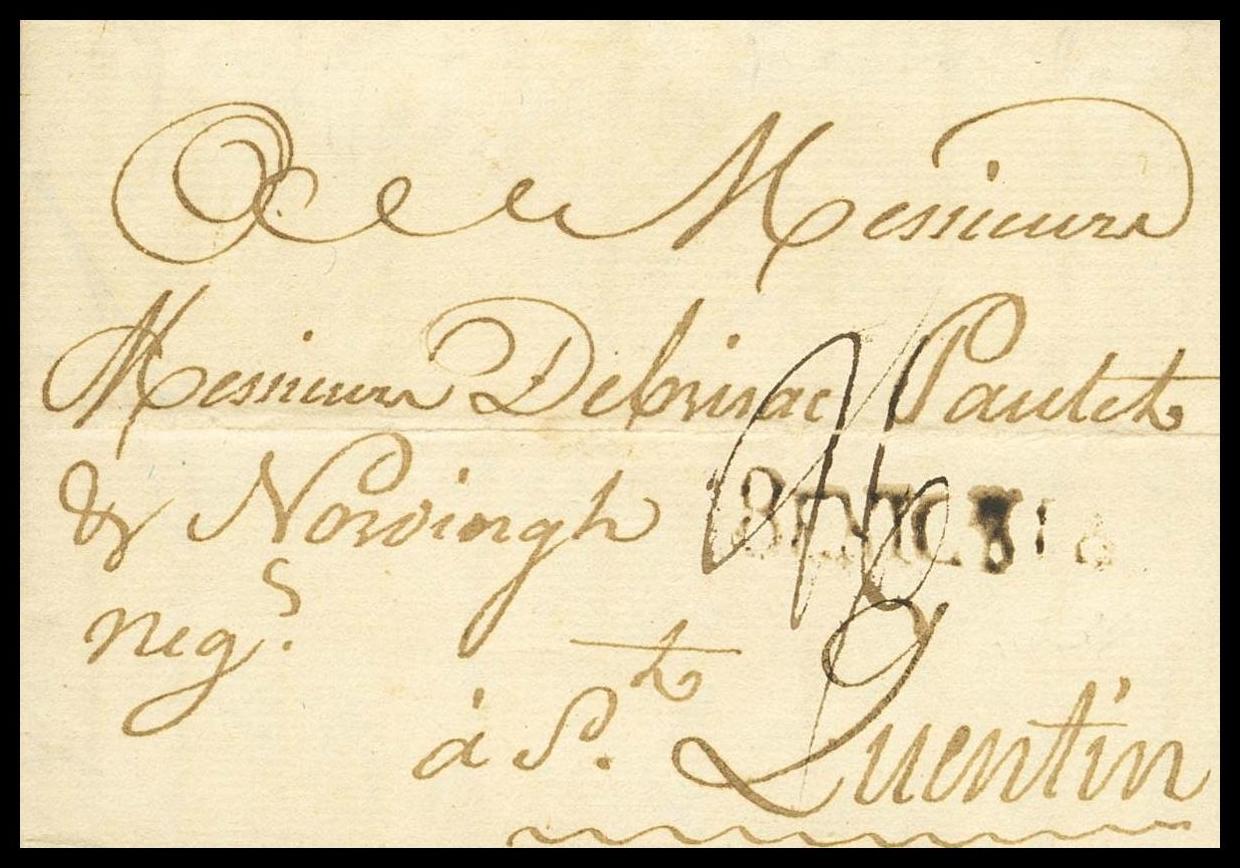 A Messieurs
Messieurs Debrisac Pautet
& Norvingh
neg.s
à St. Quentin